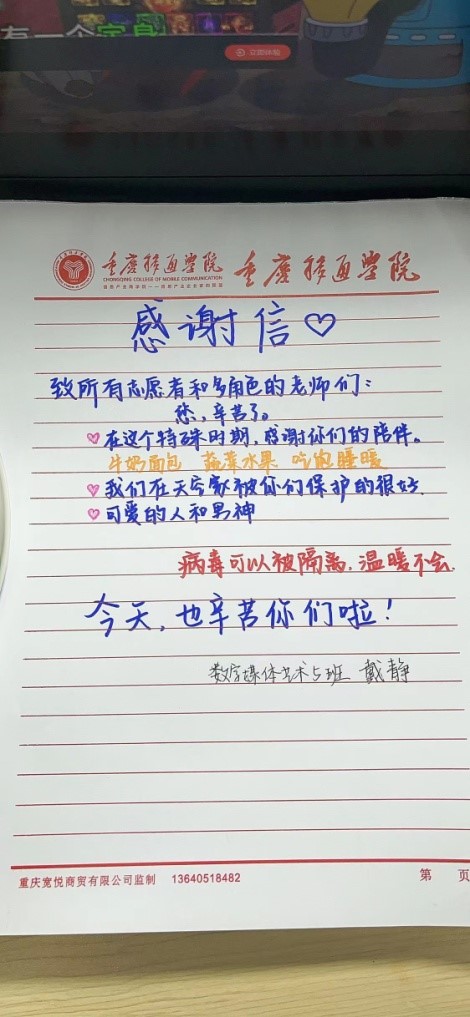 有一个宝
立即体验
重庆移通学院 重庆移通学院
CHONGQING COLLEGE OF MOBILE COMMUNICATION
感谢信♡
致所有志愿者和多角色的老师们:
您,辛苦了。
♡在这个特殊时期,感谢你们的陪伴。
牛奶面包 蔬菜水果 吃饱睡暖
♡我们在天空家被你们保护的很好.
♡可爱的人和男神
病毒可以被隔离,温暖不会.
今天,也辛苦你们啦!
数字媒体艺术5班 戴静
重庆宽悦商贸有限公司监制 13640518482 第 页